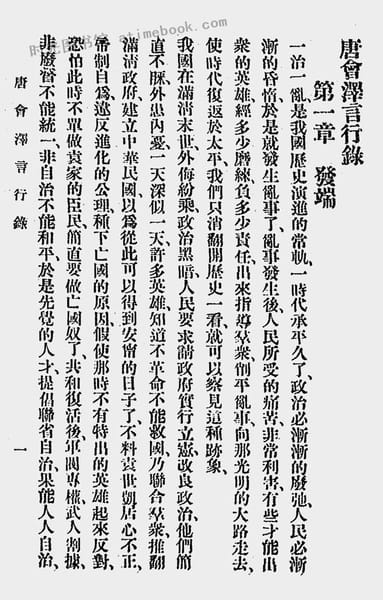 时光图书馆 · atimebook.com
唐會澤言行錄
第一章 發端
一治一亂是我國歷史演進的常軌、一時代承平久了、政治必漸漸的廢弛、人民必漸
漸的昏惰、於是就發生亂事了、亂事發生後人民所受的痛苦、非常利害、有些才能出
衆的英雄、經多少磨練、負多少責任、出來指導羣衆、削平亂事、向那光明的大路走去、
使時代復返於太平、我們只消翻開歷史一看、就可以察見這種跡象、
我國在滿清末世、外侮紛乘、政治黑暗、人民要求請政府實行立憲、改良政治、他們簡
直不睬、外患內憂、一天深似一天、許多英雄、知道不革命不能救國、乃聯合羣衆、推翻
滿清政府、建立中華民國、以爲從此可以得到安甯的日子了、不料袁世凱居心不正、
帝制自爲、違反進化的公理、種下亡國的原因、假使那時不有特出的英雄起來反對、
恐怕此時不單做袁家的臣民、簡直要做亡國奴了、共和復活後、軍閥專權、武人割據、
非廢督不能統一、非自治不能和平、於是先覺的人才、提倡聯省自治、果能人人自治、
唐會澤言行錄
一